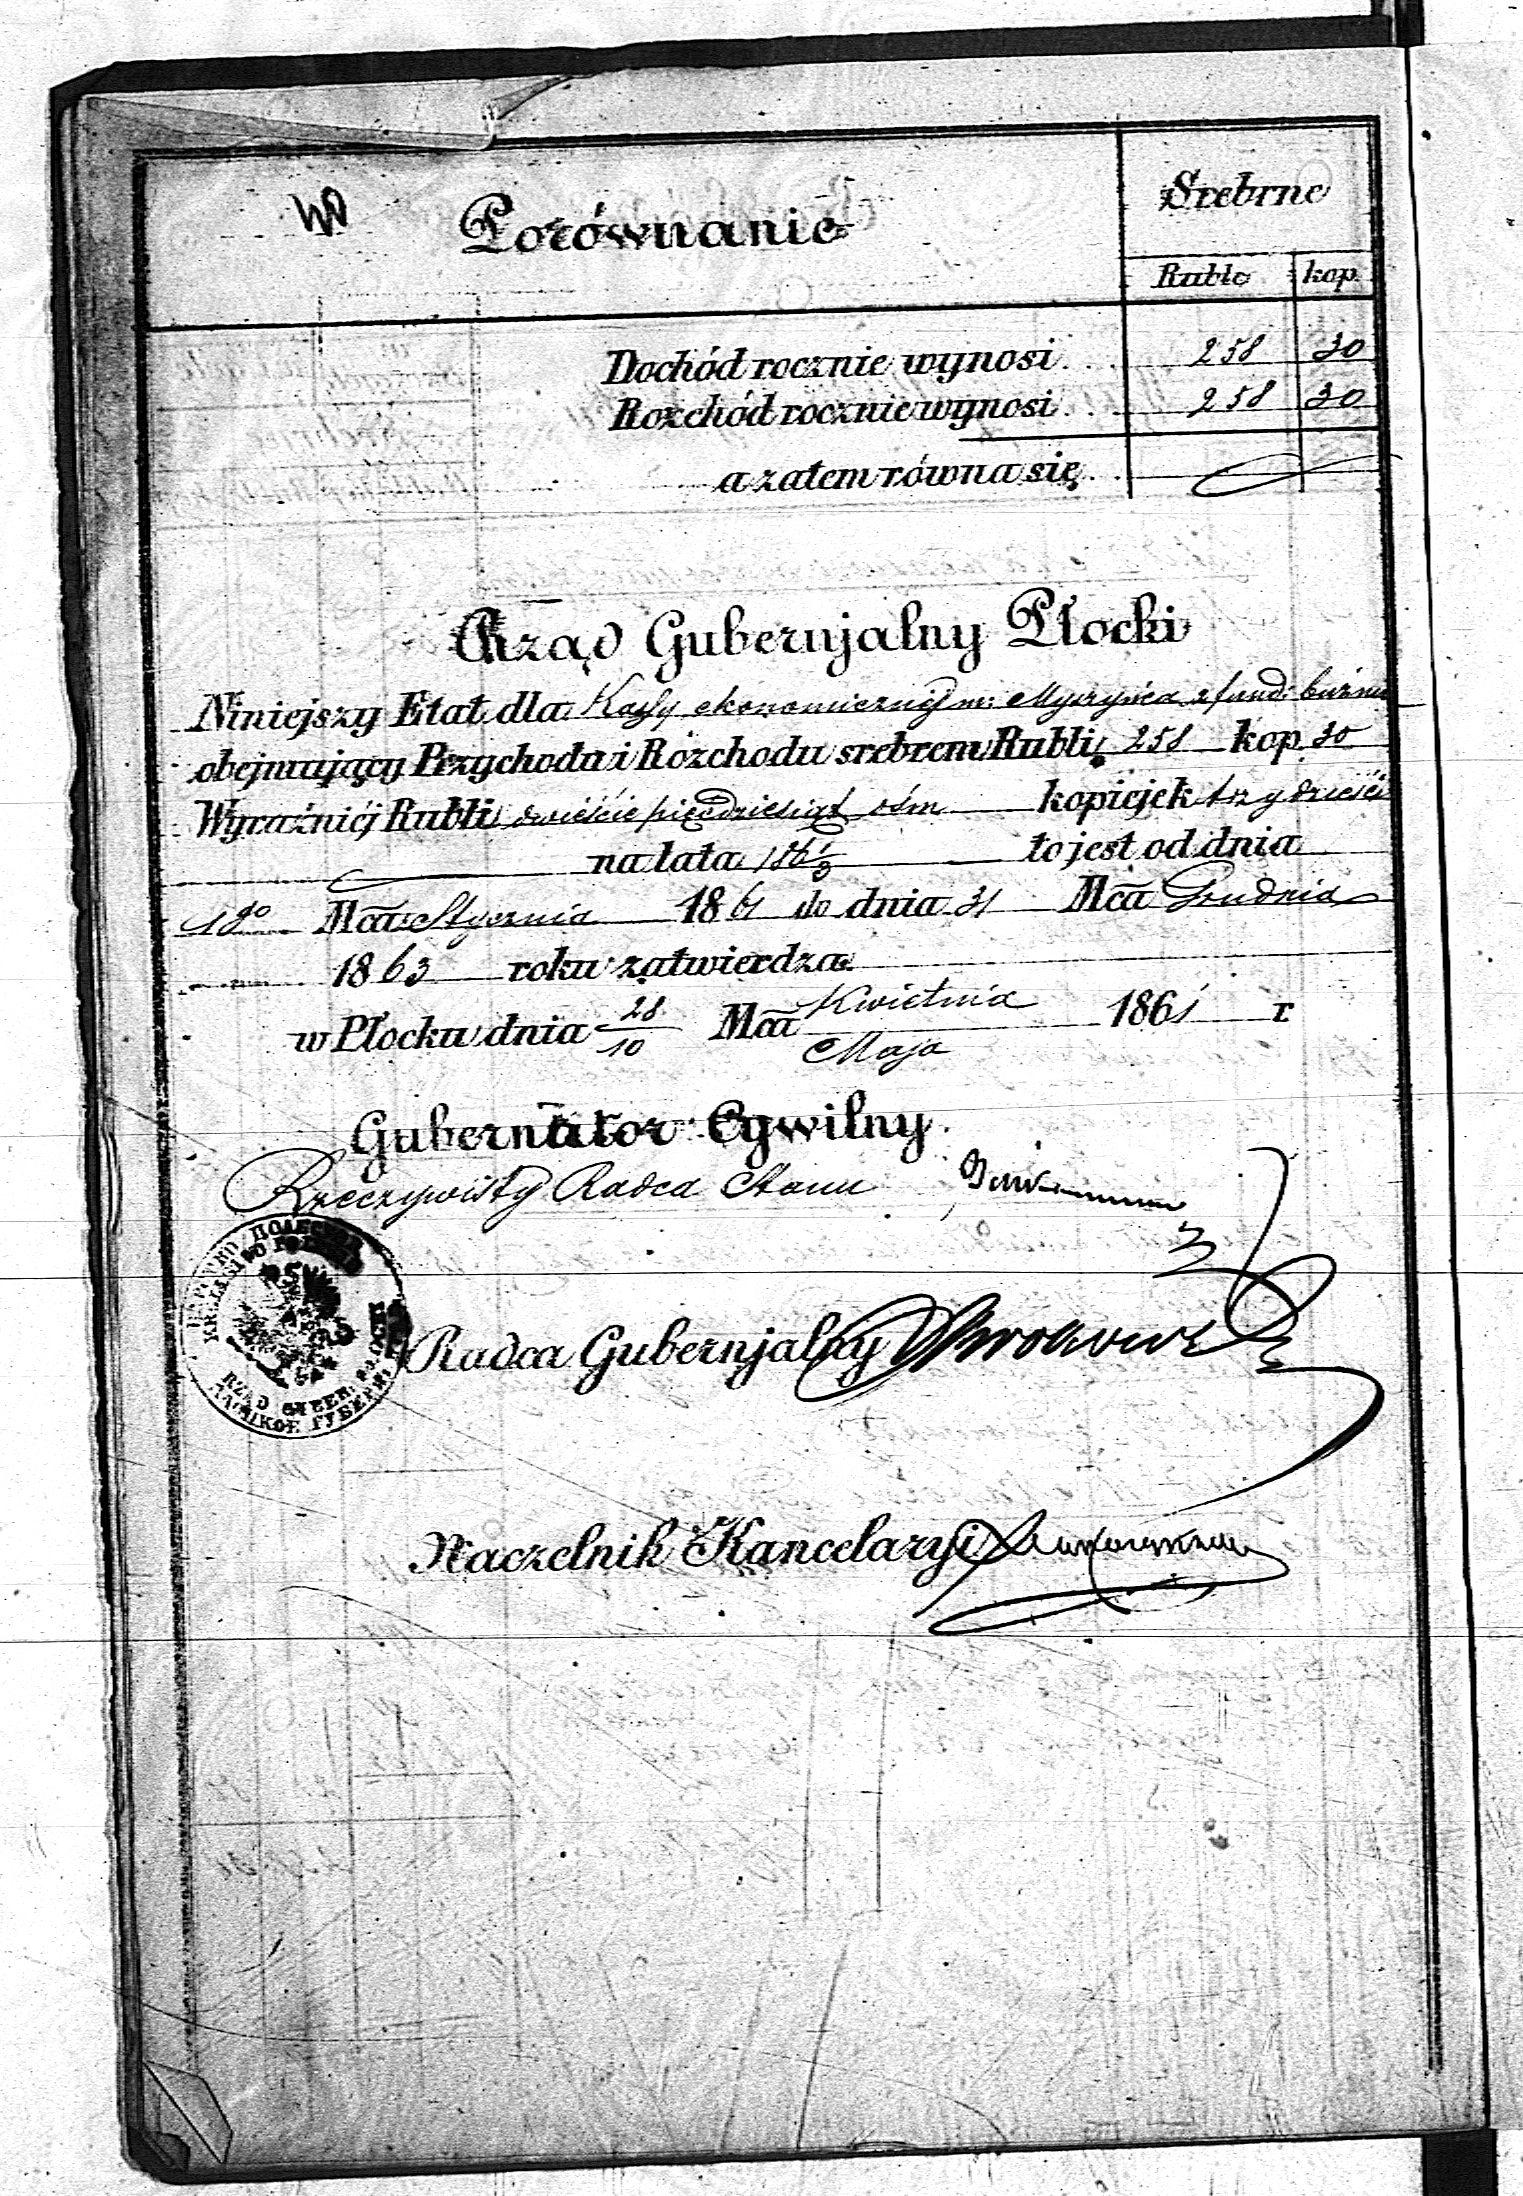 Porównanie
Srebrne
Ruble kop.
Dochód rocznie wynosi . . . 258 30
Rozchód rocznie wynosi . . . 258 30
a zatem równa się . .
Rząd Gubernjalny Płocki
Niniejszy Etat dla Kassy ekonomicznej m: Myszyńca z fund:
obejmujący Przychodu i Rozchodu srebrem Rubli 258 kop. 30
Wyraźniéj Rubli dwieście pięćdziesiąt ośm kopiejek trzydzieści
na lata 1861/3 to jest od dnia
1go Mca Stycznia 1861 do dnia 31 Mca Grudnia
1863 roku zatwierdza.
w Płocku dnia 28/10 Mca Kwietnia/Maja 1861 r
Gubernator Cywilny
Rzeczywisty Radca Stanu
Radca Gubernjalny
Naczelnik Kancelaryi